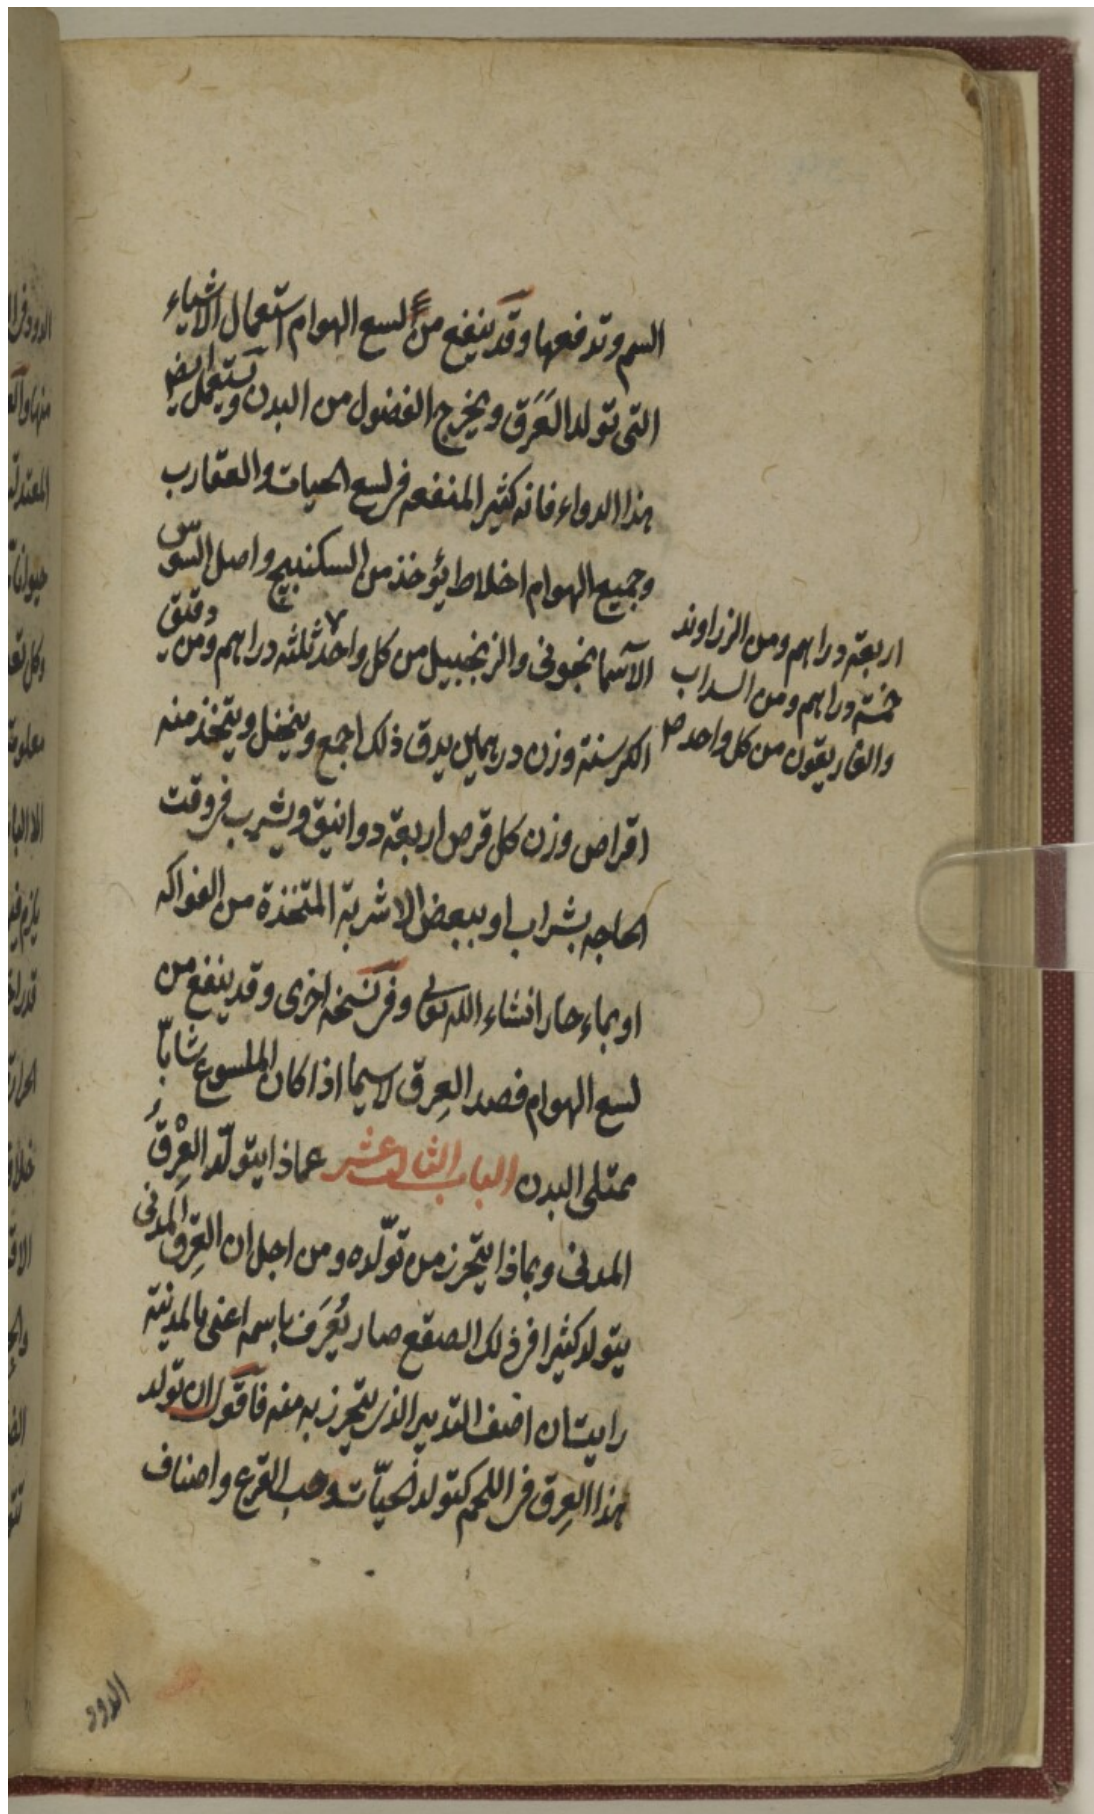 السم وتدفعها وقد ينفع من لسع الهوام استعمال الاشياء
التى تولد العَرَق ويخرج الفضول من البدن ويستعمل ايضا
هذا الدواء فانه كثير المنفعه فى لسع الحيات والعقارب
وجميع الهوام اخلاط يؤخذ من السكنبيج واصل السوس
الآسمانجونى والزنجبيل من كل واحد ثلثه دراهم ومن دقيق
الكرسنة وزن درهمين يدق ذلك اجمع وينخل ويتخذ منه
اقراص وزن كل قرص اربعة دوانيق ويشرب فى وقت
الحاجه بشراب او ببعض الاشربة المتخذة من الفواكه
او بماء حار انشاء الله تعالى وفى نسخه اخرى وقد ينفع من
لسع الهوام فصد العِرق لاسيما اذا كان الملسوع شابّا
ممتلى البدن الباب الثالث عشر عماذا يتولّد العِرْقُ
المدنى وبماذا يتحرز من تولّده ومن اجل ان العِرق المدنى
يتولد كثيرا فى ذلك الصقع صار يُعرَف باسمه اعنى بالمدينة
رايت ان اصف التدبير الذى يتحرز به منه فاقول ان تولد
هذا العِرق فى اللحم كتولد الحيّات وحب القرع واصناف
الدود
اربعة دراهم ومن الزراوند
خمسة دراهم ومن السداب
والغاريقون من كل واحد